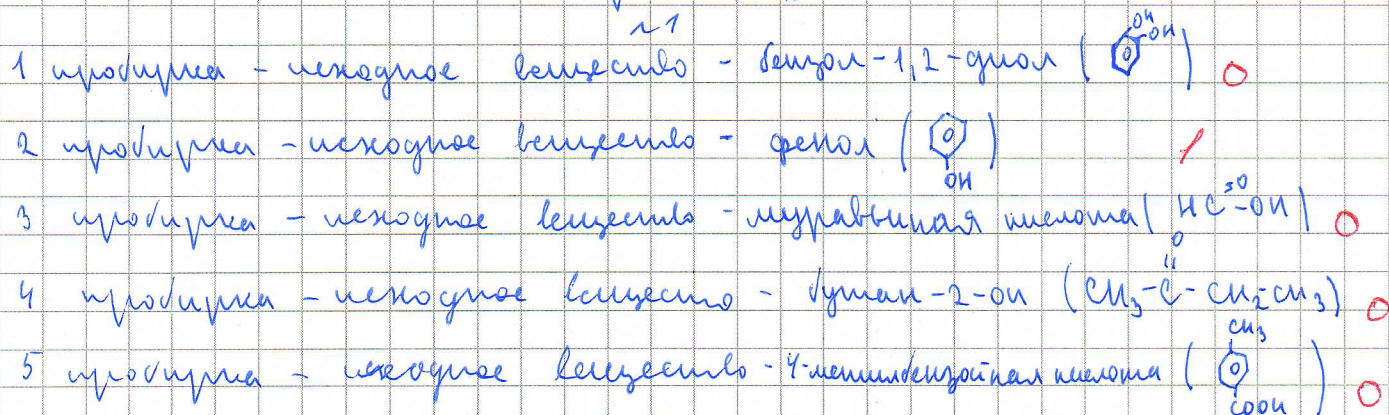 №1
1 пробирка - исходное вещество - бензол-1,2-диол (OH OH) 0
2 пробирка - исходное вещество - фенол (OH) 1
3 пробирка - исходное вещество - муравьиная кислота (HC=O-OH) 0
4 пробирка - исходное вещество - бутан-2-он (CH3-C(=O)-CH2-CH3) 0
5 пробирка - исходное вещество - 4-метилбензойная кислота (CH3 COOH) 0